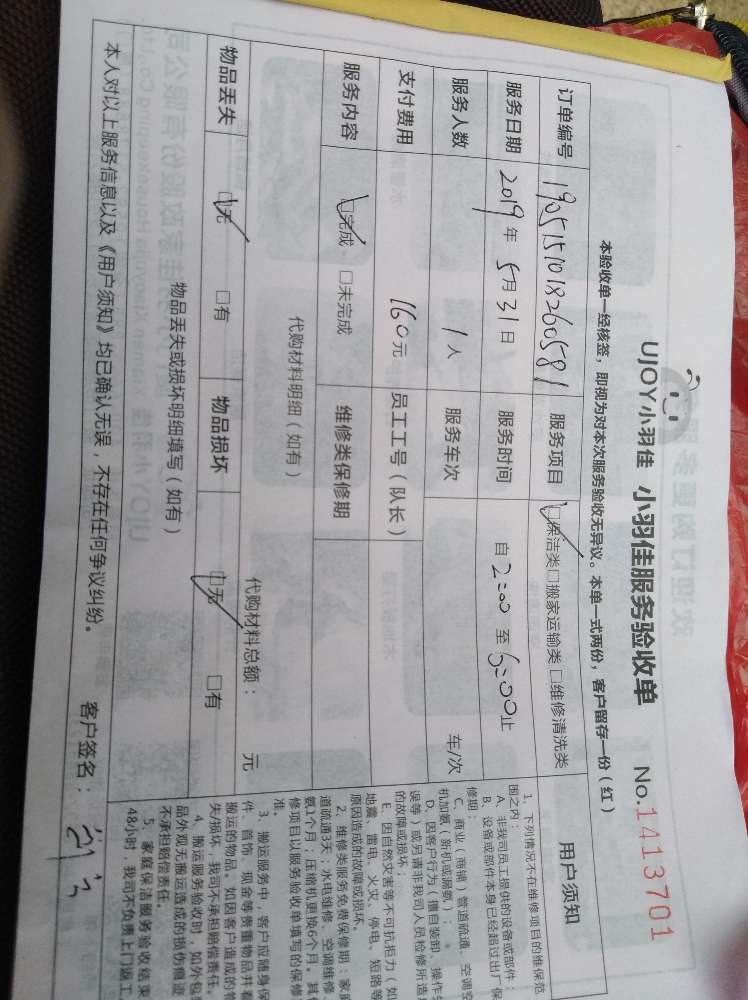 UJOY小羽佳 小羽佳服务验收单 No.1413701
本验收单一经核签，即视为对本次服务验收无异议。本单一式两份，客户留存一份（红）
订单编号 1905151018260581 服务项目 □保洁类□搬家运输类□维修清洗类
服务日期 2019年5月31日 服务时间 自2:00至6:00止
服务人数 1人 服务车次 车/次
支付费用 160元 员工工号（队长）
服务内容 □完成 □未完成 维修类保修期
代购材料明细（如有） 代购材料总额： 元
物品丢失 □无 □有 物品损坏 □无 □有
物品丢失或损坏明细填写（如有）
本人对以上服务信息以及《用户须知》均已确认无误，不存在任何争议纠纷。 客户签名：
用户须知
1、下列情况不在维修项目的维保范
围之内：
A、非我司员工提供的设备或部件；
B、设备或部件本身已经超过出厂保
修期；
C、商业（商铺）管道疏通、空调空
机加氨（新机或漏氨）；
D、因客户行为（擅自装卸、操作失
误等）或另请非我司人员检修所造
的故障或损坏；
E、因自然灾害等不可抗拒力（如
地震、雷电、火灾、停电、短路等
原因造成的故障或损坏。
2、维修类服务免费保修期：家庭
道疏通3天；水电维修、空调维修
氨1个月；压缩机更换6个月。其他
修项目以服务验收单填写的保修
准。
3、搬运服务中，客户应随身保
件、首饰、现金等贵重物品并看
搬运的物品。如因客户造成的
失/损坏，我司不承担赔偿责任。
4、搬运服务验收时，如外包
品外观无搬运造成的损伤痕迹
不承担赔偿责任。
5、家庭保洁服务验收结束
48小时，我司不负责上门返工